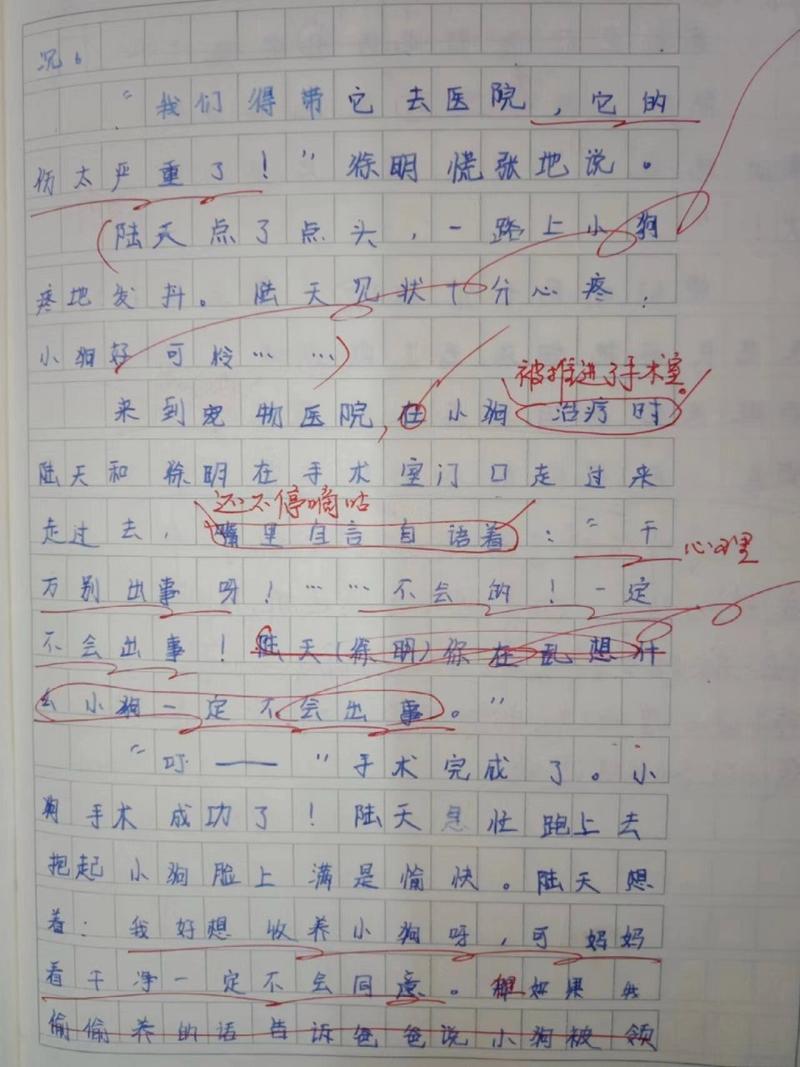 沉。
“我们得带它去医院，它的
伤太严重了！”徐明慌张地说。
陆天点了点头，一路上小狗
疼地发抖。陆天见状十分心疼，
小狗好可怜……)
被推进了手术室。
来到宠物医院，在小狗治疗时
陆天和徐明在手术室门口走过来
还不停嘀咕
走过去，嘴里自言自语着：“千
心理
万别出事呀！……不会的！一定
不会出事！陆天(徐明)你在乱想什
么小狗一定不会出事。”
“叮——”手术完成了。小
狗手术成功了！陆天急忙跑上去
抱起小狗脸上满是愉快。陆天想
着：我好想收养小狗呀，可妈妈
看干净一定不会同意。如果我
偷偷养的话告诉爸爸说小狗被领